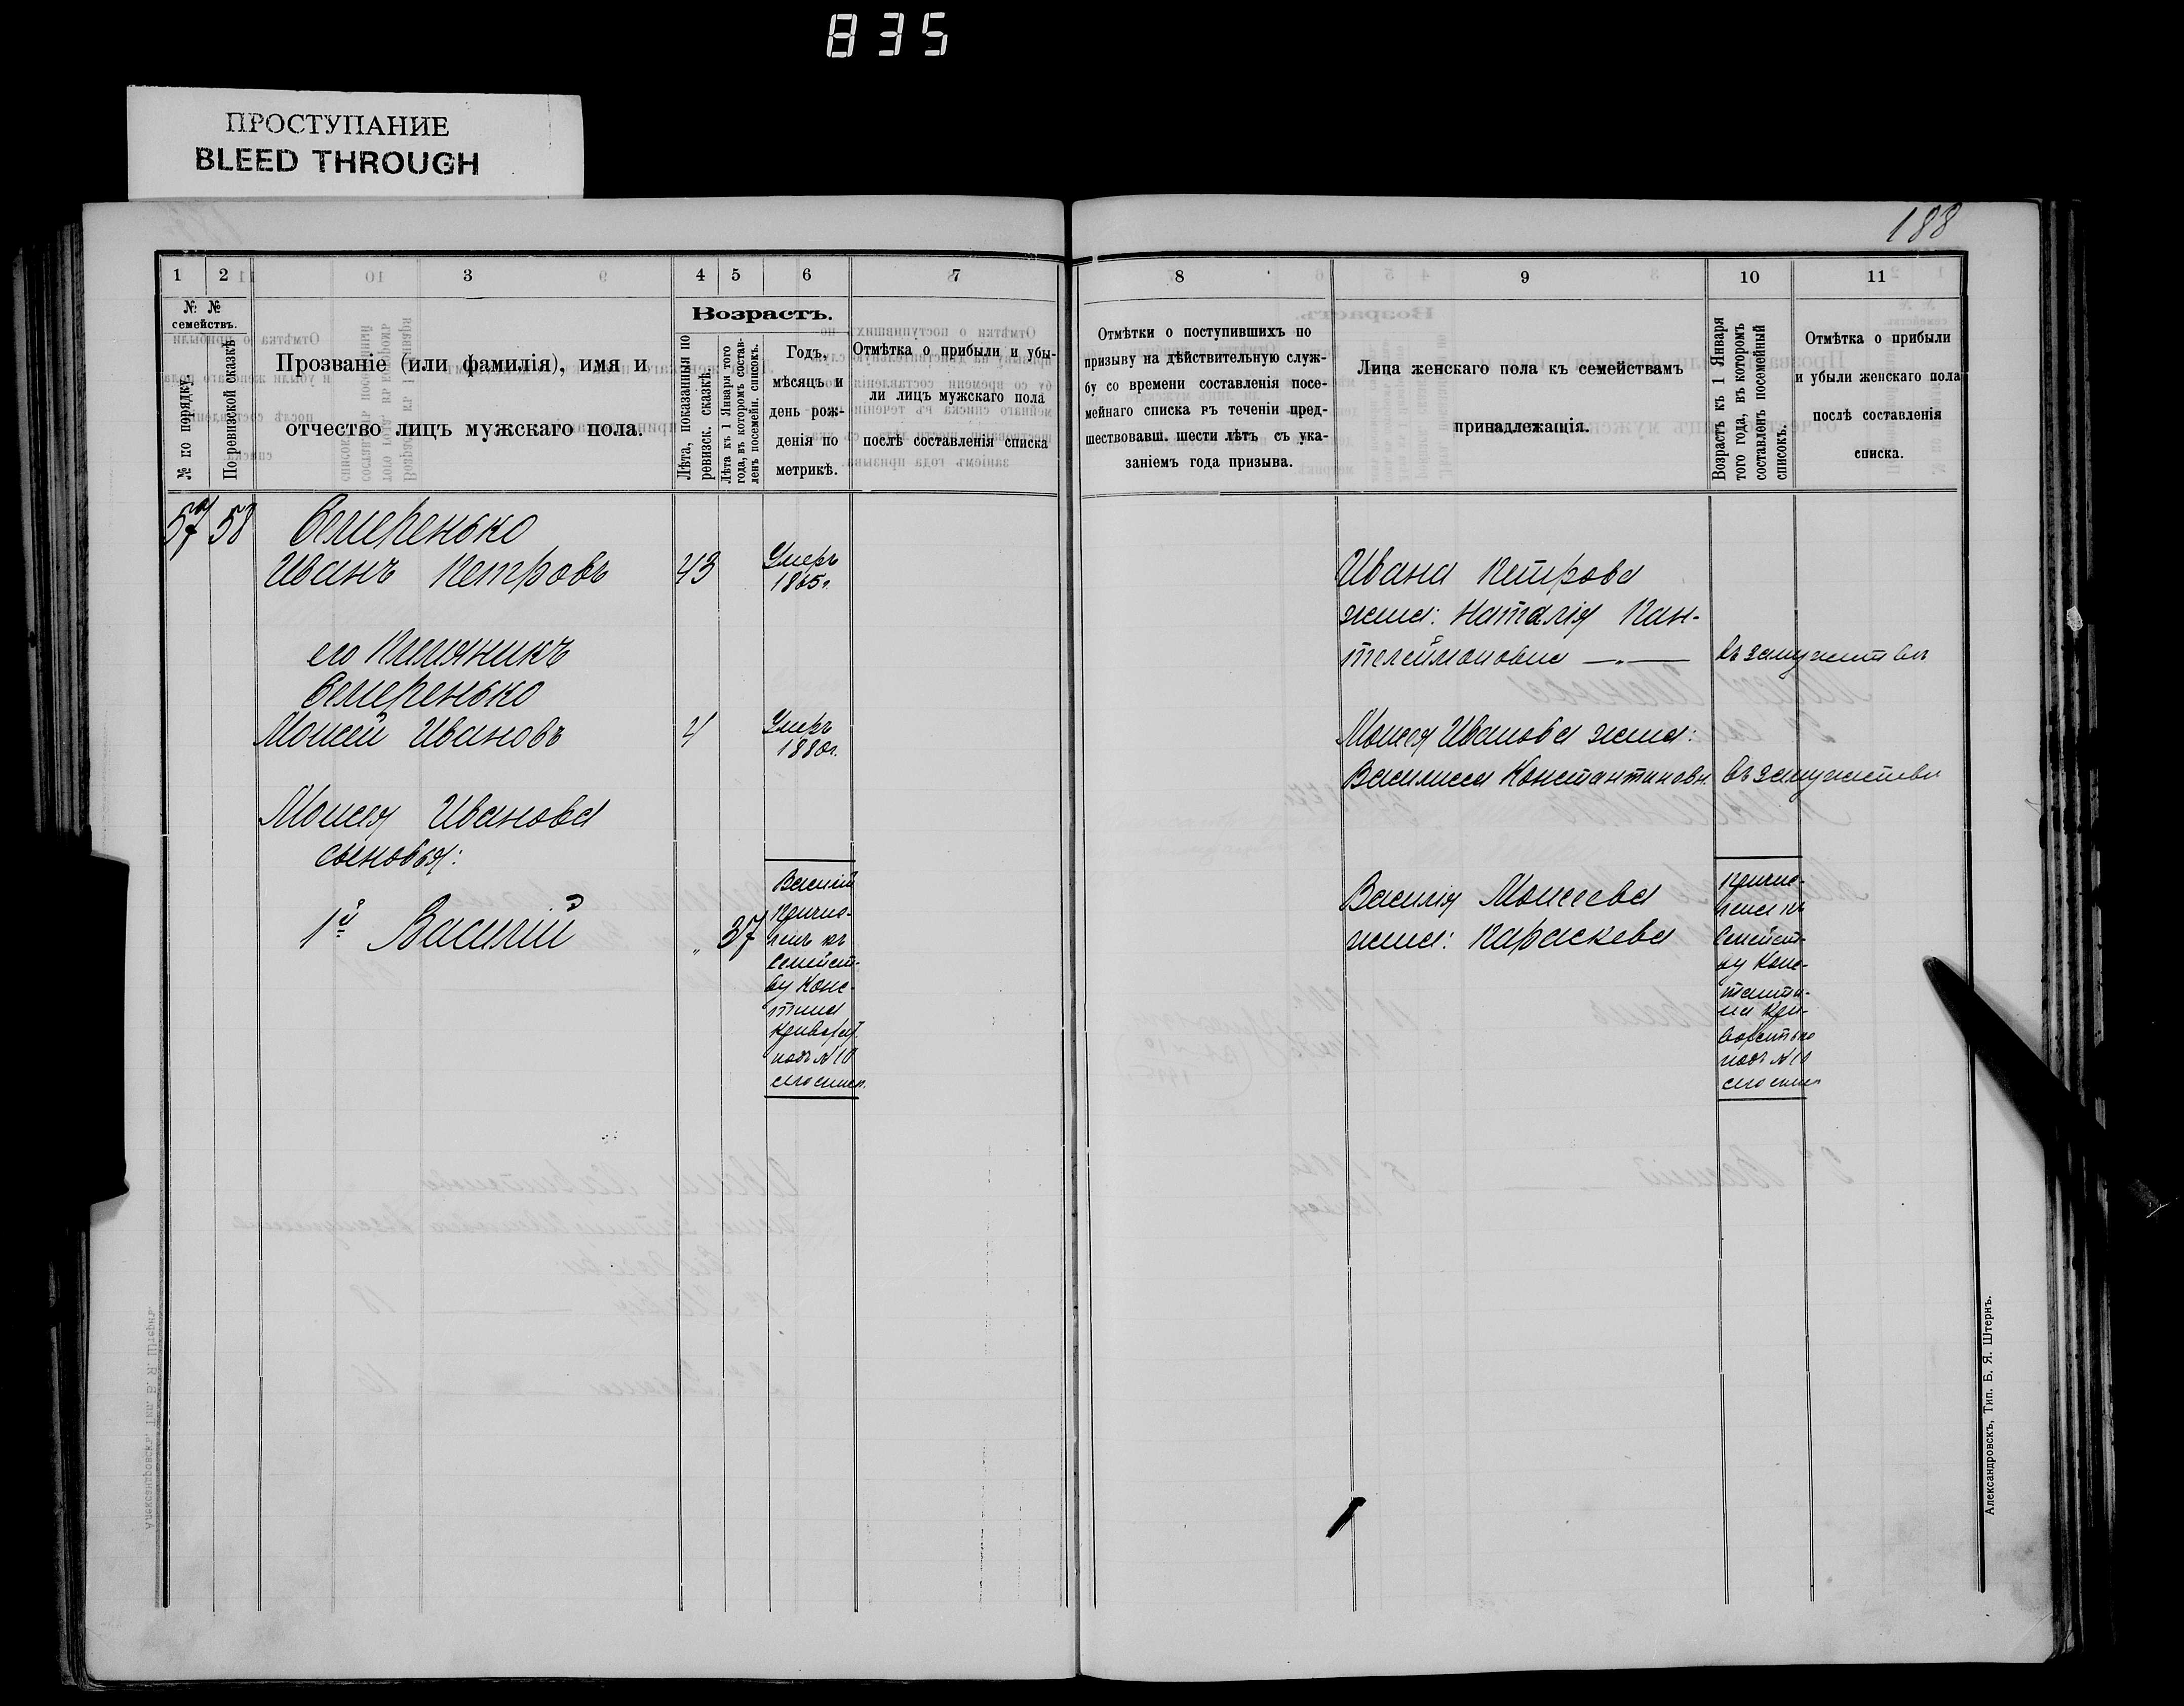 835
ПРОСТУПАНИЕ
BLEED THROUGH
188
1 2 3 4 5 6 7
№ №
семействъ.
№ по порядку.
По ревизской сказкѣ
Прозваніе (или фамилія), имя и
отчество лицъ мужскаго пола.
Возрастъ.
Лѣта, показанныя по
ревизск. сказкѣ.
Лѣта къ 1 Января того
года, въ которомъ состав-
ленъ посемейн. списокъ.
Годъ,
мѣсяцъ и
день рож-
денія по
метрикѣ.
Отмѣтка о прибыли и убы-
ли лицъ мужскаго пола
послѣ составленія списка
57 58 Семеренько
Иванъ Петровъ 43 Умеръ
1865г.
его племяникъ
Семеренько
Моисей Ивановъ 4 Умеръ
1880г.
Моисея Иванова
сыновья:
1й Василій " 37
Василій
причис-
ленъ къ
семейст-
ву Конс-
подъ №10
сего списк.
8 9 10 11
Отмѣтки о поступившихъ по
призыву на дѣйствительную служ-
бу со времени составленія посе-
мейнаго списка въ теченіи пред-
шествовавш. шести лѣтъ съ ука-
заніемъ года призыва.
Лица женскаго пола къ семействамъ
принадлежащія.
Возрастъ къ 1 Января
того года, въ которомъ
составленъ посомейный
списокъ.
Отмѣтка о прибыли
и убыли женскаго пола
послѣ составленія
списка.
Ивана Петрова
жена: Наталія Пан-
телеймоновна — " — въ замужествѣ
Моисея Иванова жена:
Василиса Константиновн. въ замужествѣ
Василія Моисеева
жена: Параскева
причис-
лена къ
семейст-
ву Конс-
танти-
на Кри-
подъ №10
сего списк
Александровскъ, Тип. Б. Я. Штернъ.